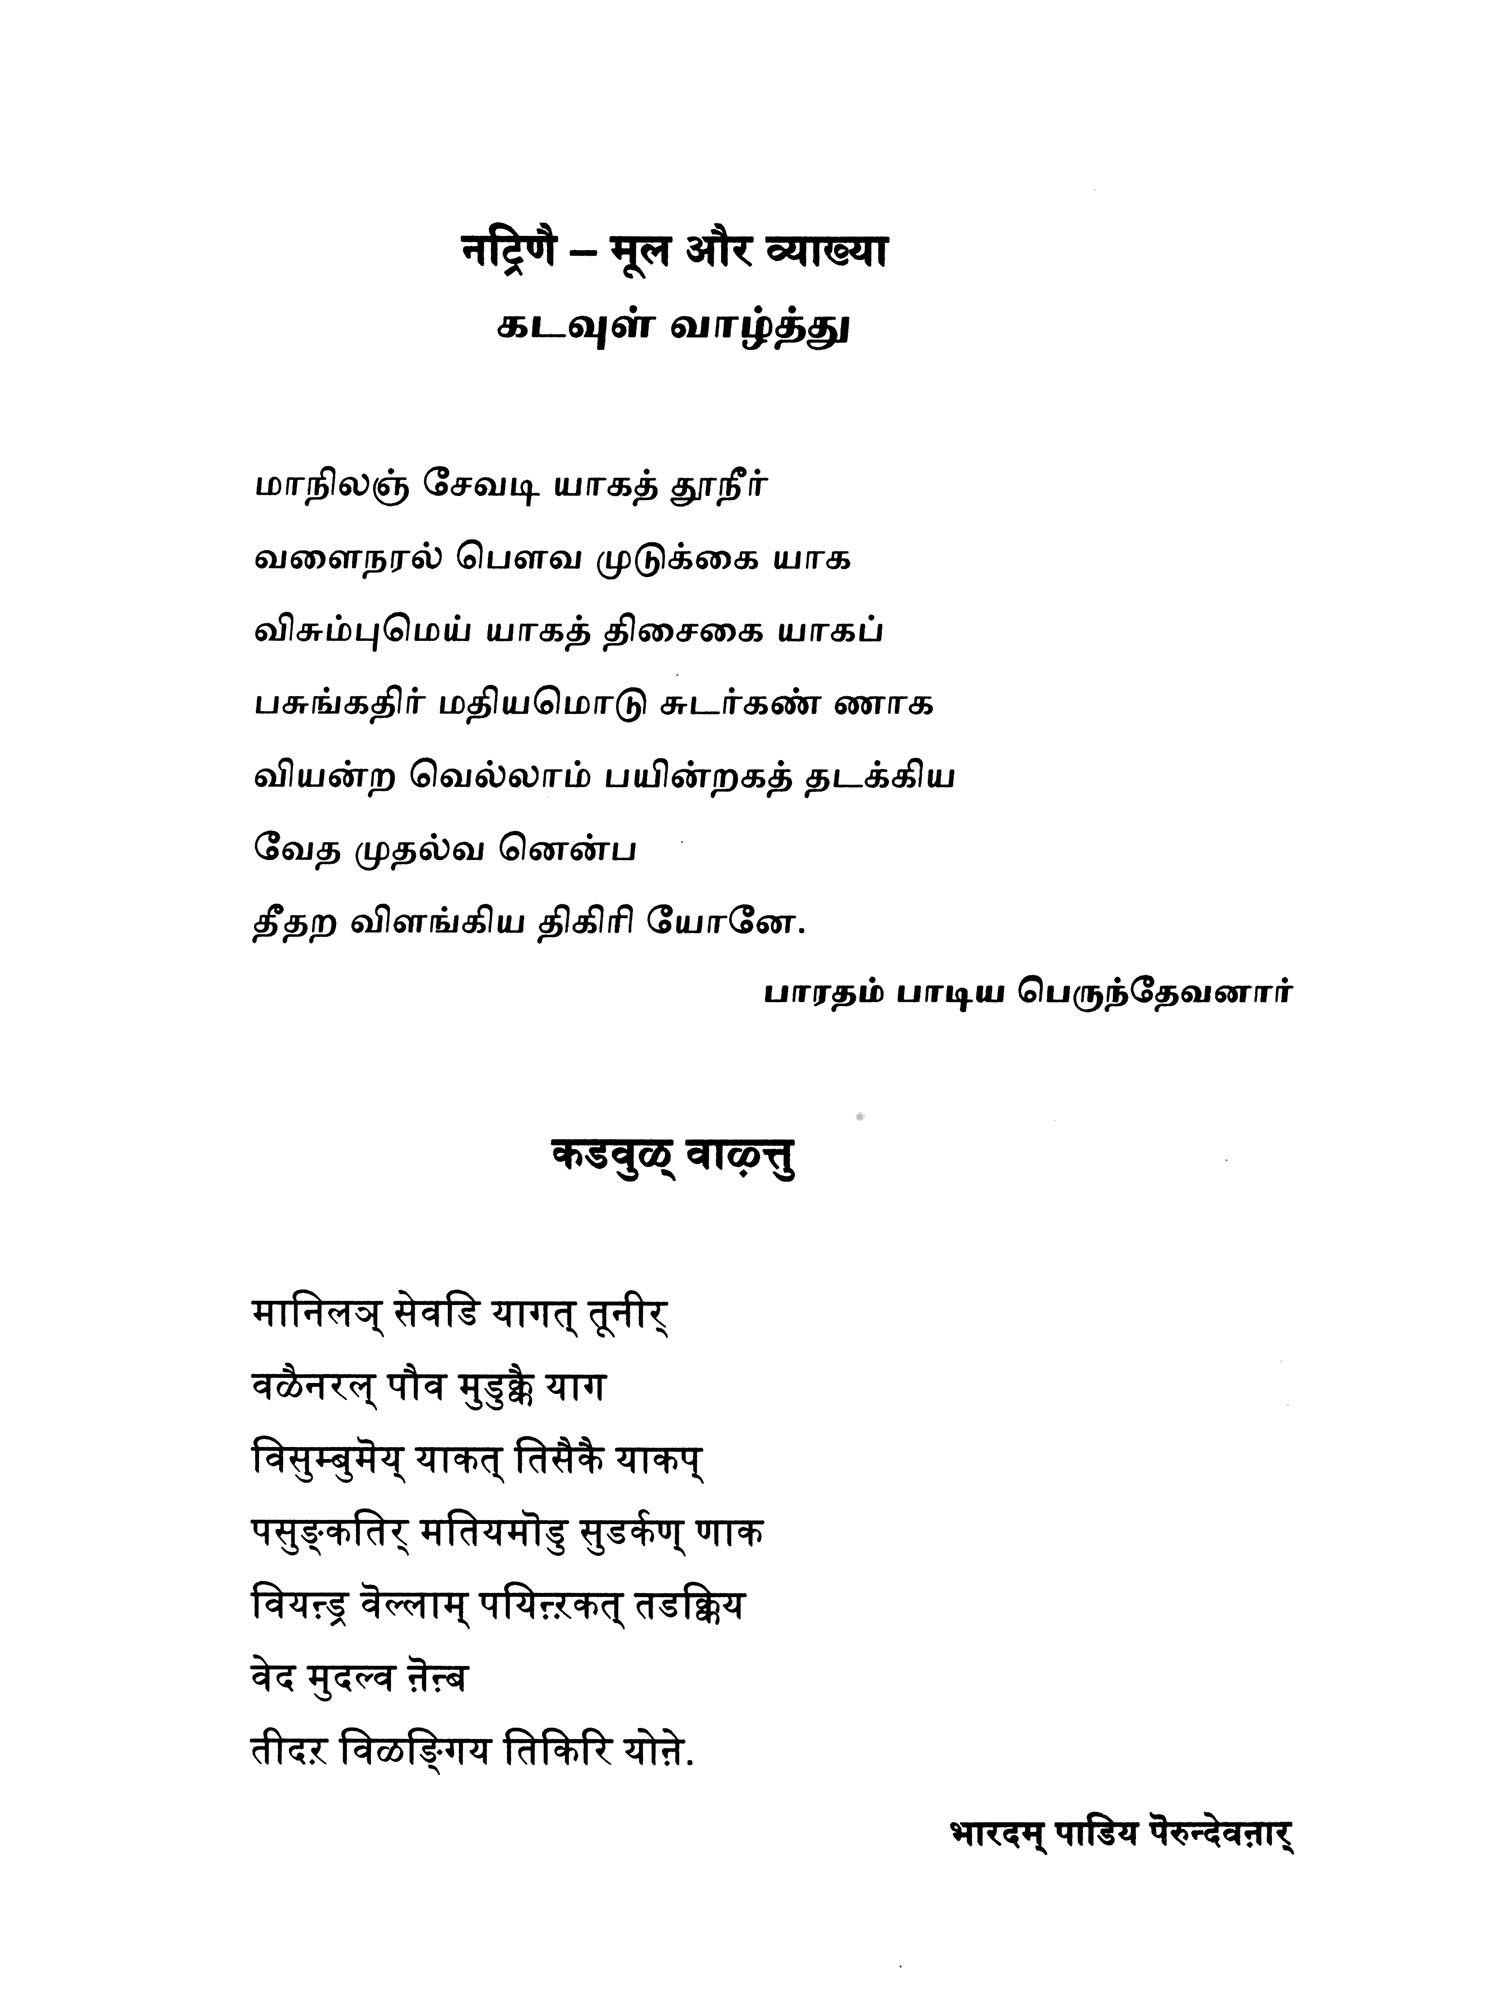 नट्रिणै – मूल और व्याख्या
கடவுள் வாழ்த்து
மாநிலஞ் சேவடி யாகத் தூநீர்
வளைநரல் பௌவ முடுக்கை யாக
விசும்புமெய் யாகத் திசைகை யாகப்
பசுங்கதிர் மதியமொடு சுடர்கண் ணாக
வியன்ற வெல்லாம் பயின்றகத் தடக்கிய
வேத முதல்வ னென்ப
தீதற விளங்கிய திகிரி யோனே.
பாரதம் பாடிய பெருந்தேவனார்
कडवुळ् वाऴ्त्तु
मानिलञ् सेवडि यागत् तूनीर्
वळैनरल् पौव मुडुक्कै याग
विसुम्बुमॆय् याकत् तिसैकै याकप्
पसुङ्कतिर् मतियमॊडु सुडर्कण् णाक
वियऩ्ड्र वॆल्लाम् पयिऩ्ऱकत् तडक्किय
वेद मुदल्व ऩॆऩ्ब
तीदऱ विळङ्गिय तिकिरि योऩे.
भारदम् पाडिय पॆरुन्देवऩार्